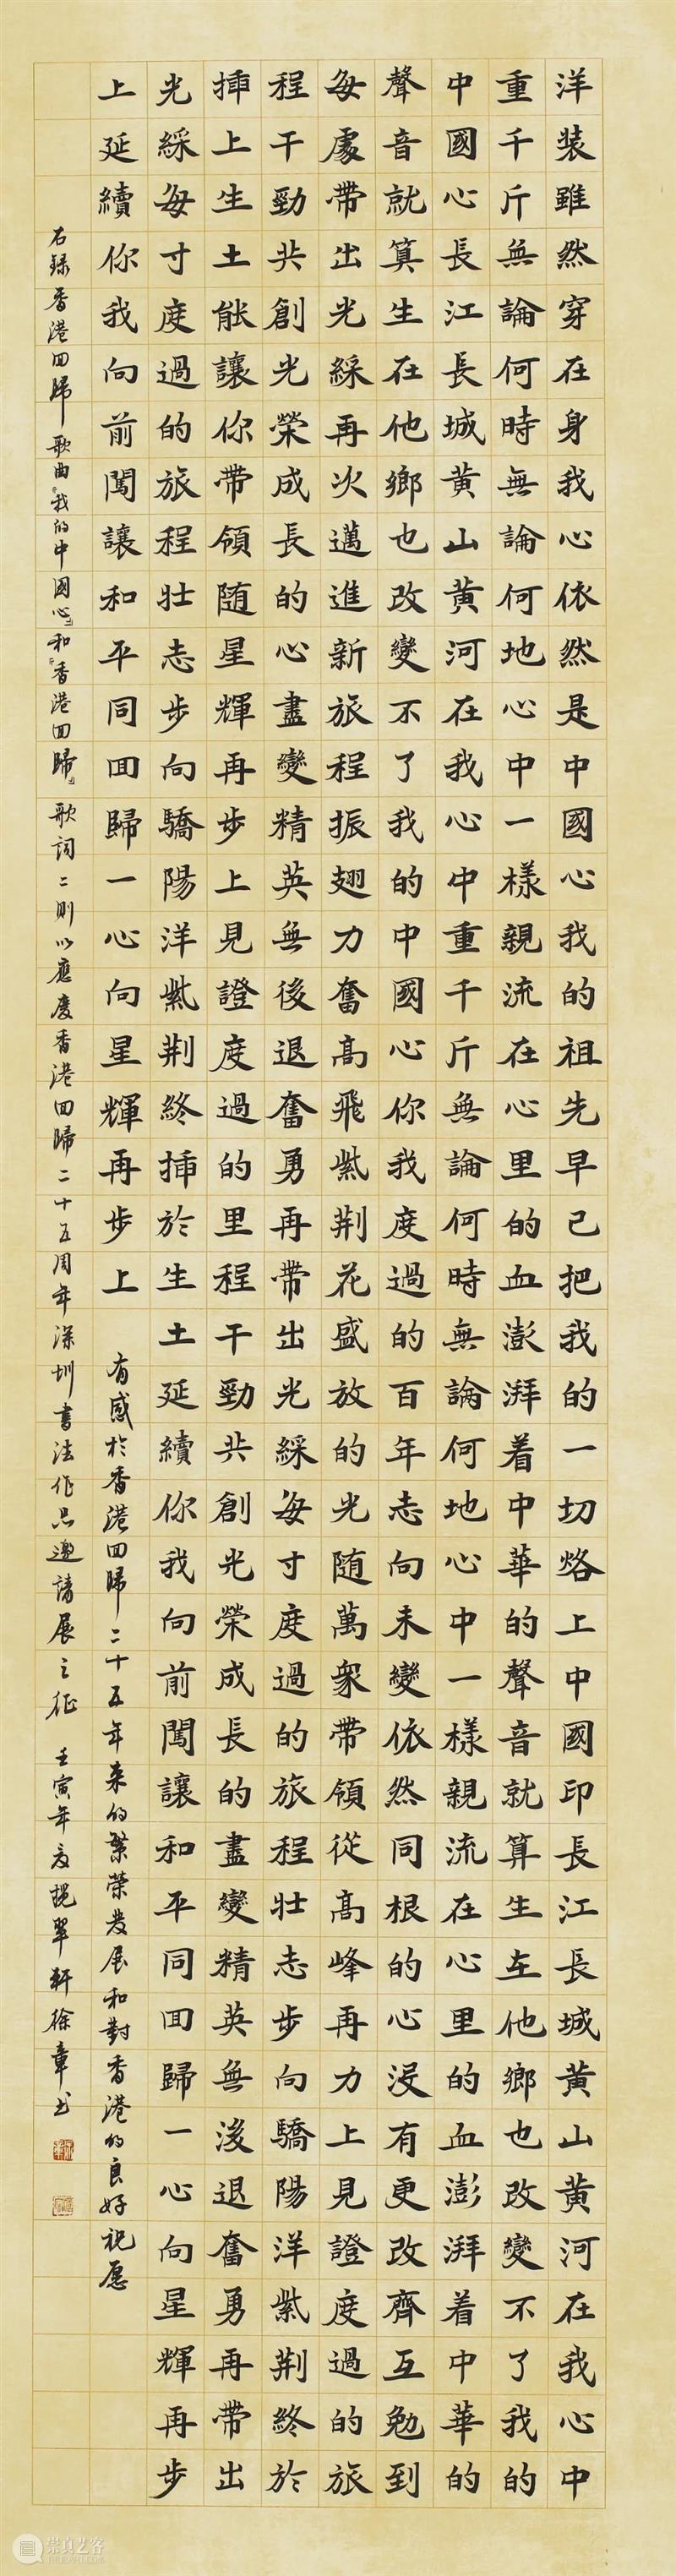 洋装雖然穿在身我心依然是中國心我的祖先早已把我的一切烙上中國印長江長城黄山黄河在我心中
重千斤無論何時無論何地心中一樣親流在心里的血澎湃着中華的聲音就算生在他鄉也改變不了我的
中國心長江長城黄山黄河在我心中重千斤無論何時無論何地心中一樣親流在心里的血澎湃着中華的
聲音就算生在他鄉也改變不了我的中國心你我度過的百年志向未變依然同根的心没有更改齊互勉到
每處帶出光綵再次邁進新旅程振翅力奮高飛紫荆花盛放的光随萬衆帶領從高峰再力上見證度過的旅
程干勁共創光榮成長的心盡變精英無後退奮勇再帶出光綵每寸度過的旅程壮志步向驕陽洋紫荆終於
插上生土能讓你帶領随星輝再步上見證度過的里程干勁共創光榮成長的盡變精英無後退奮勇再帶出
光綵每寸度過的旅程壮志步向驕陽洋紫荆終插於生土延續你我向前闖讓和平同回歸一心向星輝再步
上延續你我向前闖讓和平同回歸一心向星輝再步上
有感於香港回歸二十五年来的繁榮發展和對香港的良好祝愿
右録香港回歸歌曲《我的中國心》和《香港回歸》歌詞二則以應慶香港回歸二十五周年深圳書法作品邀請展之征 壬寅年夏挹翠軒徐章书
崇真艺客